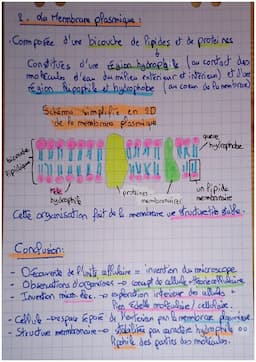 2. La Membrane plasmique :
• Composée d'une bicouche de lipides et de protéines
Constituées d'une région hydrophile (au contact des
molécules d'eau du milieu extérieur et intérieur) et d'une
région lipophile et hydrophobe (au cœur de la membrane)
Schéma simplifié en 2D
de la membrane plasmique
queue
hydrophobe
bicouche
lipidique
tête
hydrophile
protéines
membranaires
un lipide
membranaire
Cette organisation fait de la membrane une structure stable.
Conclusion :
- Découverte de l'unité cellulaire = invention du microscope
- Observations d'organismes → concept de cellule → théorie cellulaire
- Invention micro. élec. → exploration intérieur des cellules
→ échelle moléculaire / cellulaire.
- Cellule → espace séparé de l'extérieur par la membrane plasmique
- Structure membranaire → stabilisée par caractère hydrophile ou
lipophile des parties des molécules.